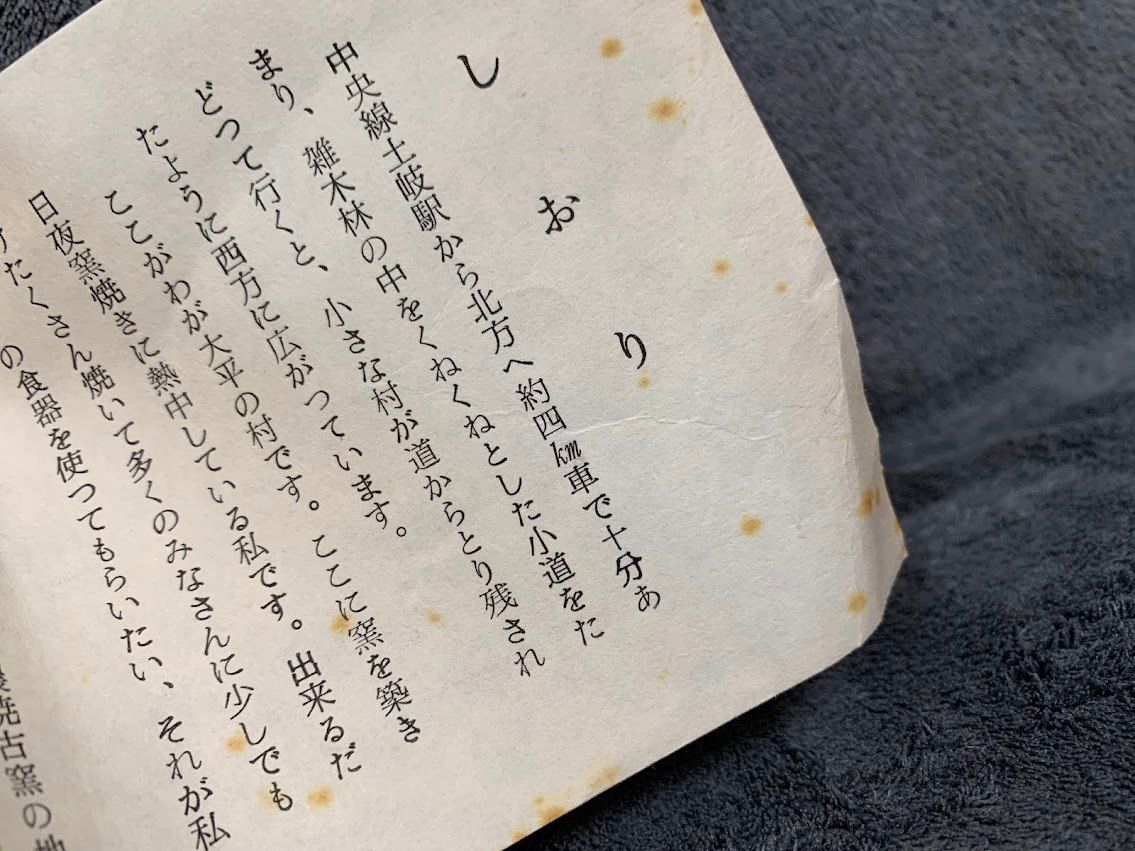 しおり
中央線土岐駅から北方へ約四㎞車で十分あ
まり、雑木林の中をくねくねとした小道をた
どつて行くと、小さな村が道からとり残され
たように西方に広がつています。
ここがわが大平の村です。ここに窯を築き
日夜窯焼きに熱中している私です。出来るだ
けたくさん焼いて多くのみなさんに少しでも
の食器を使つてもらいたい、それが私
焼古窯の地